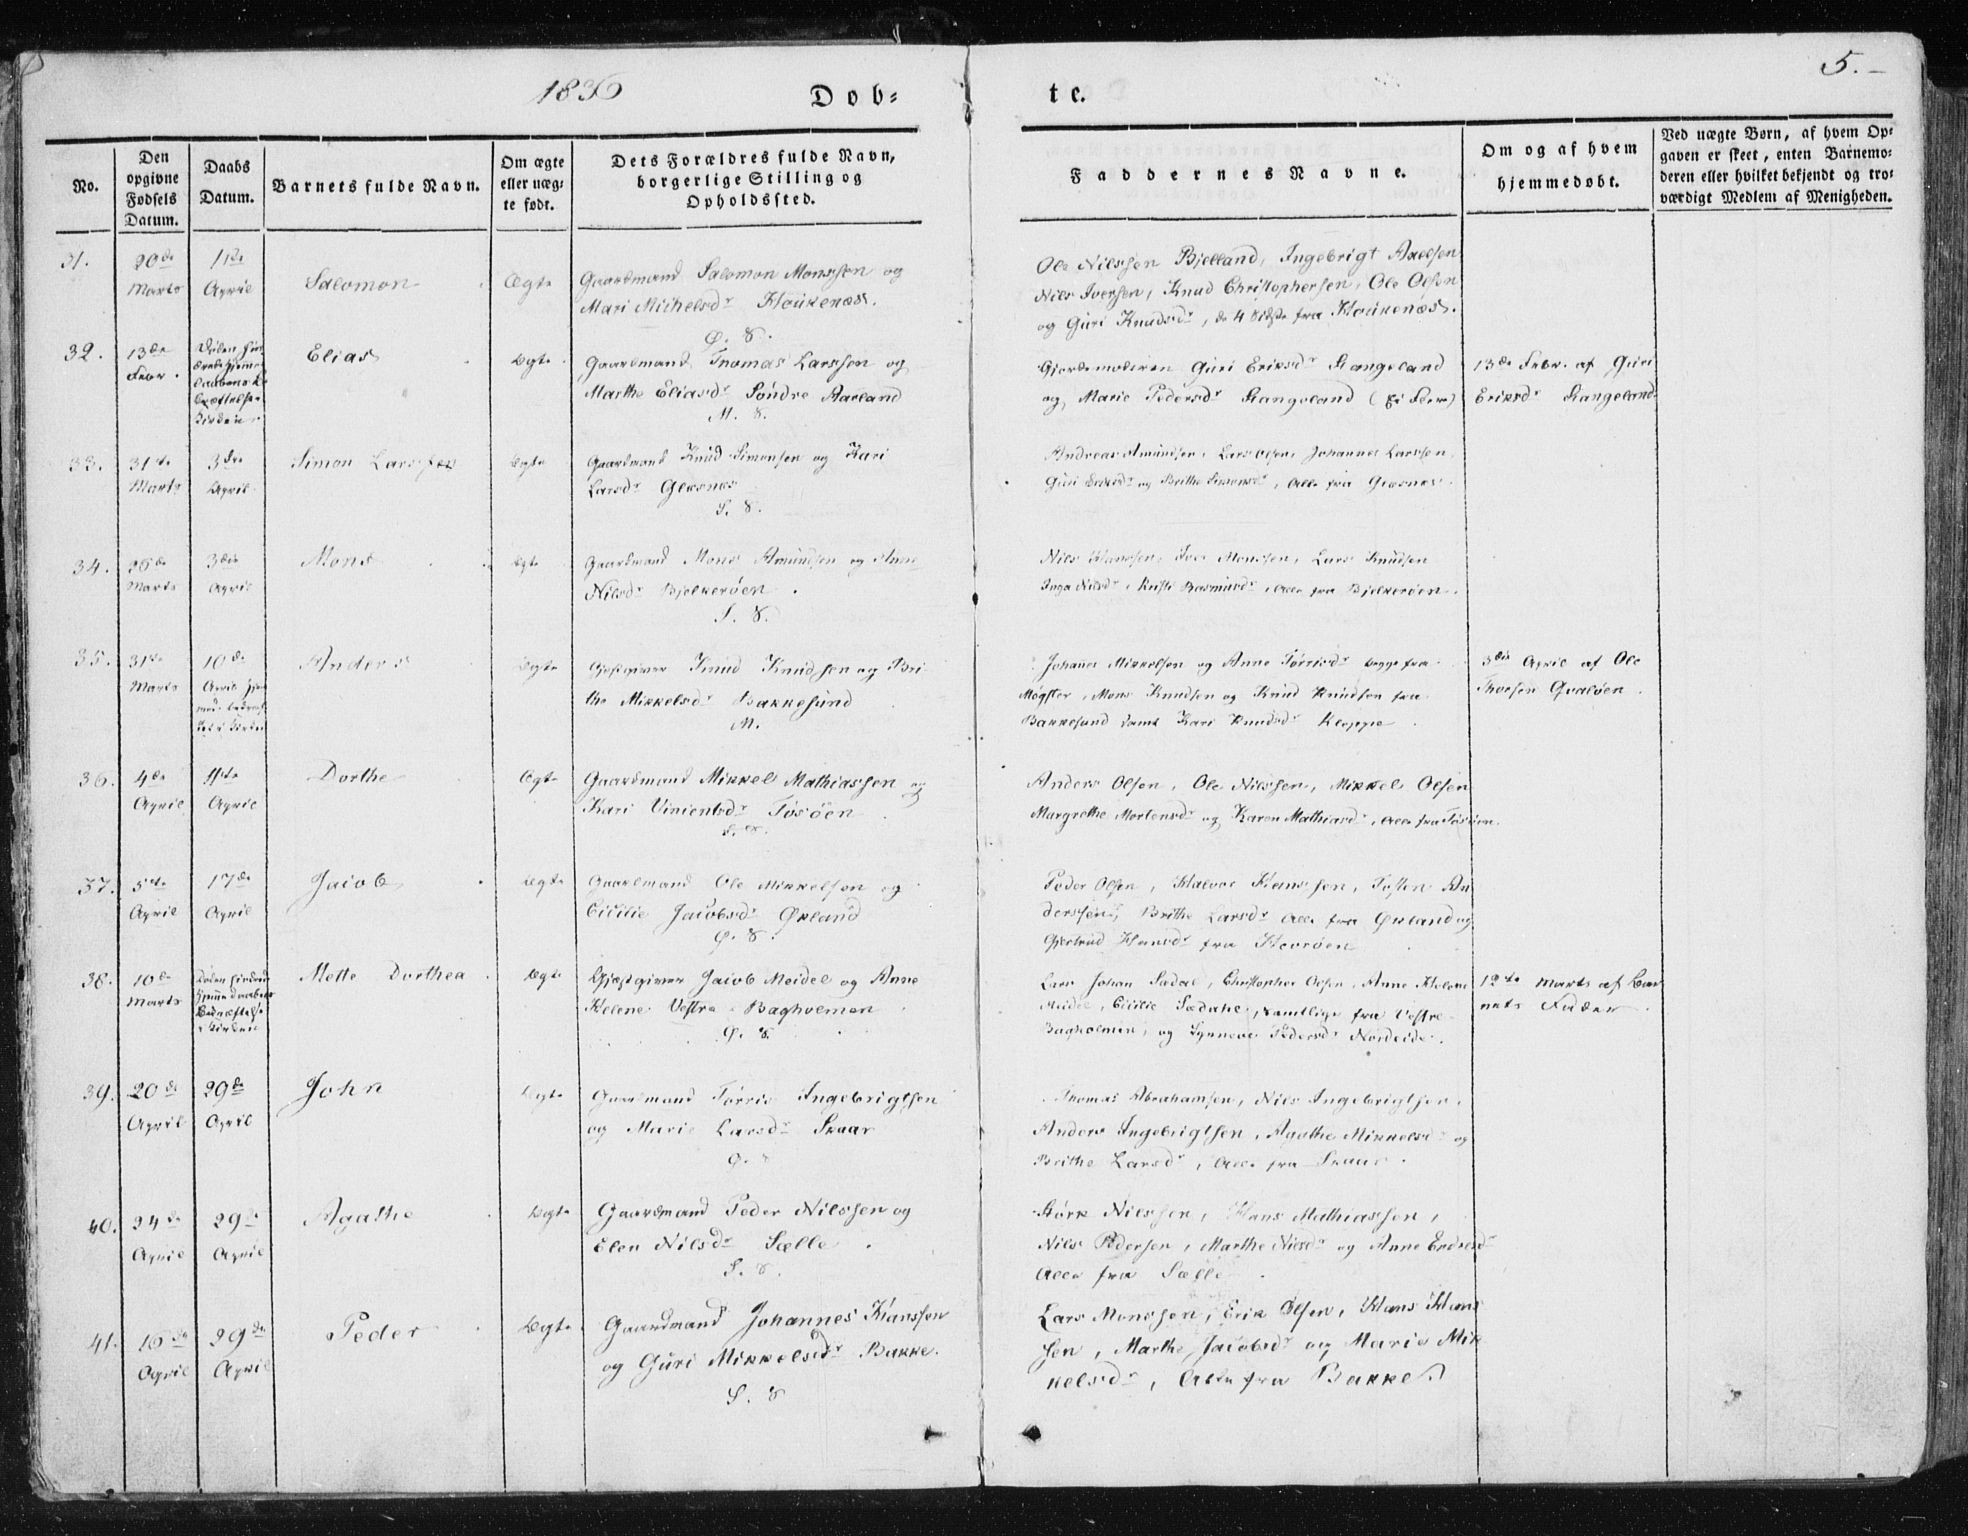 1836
Dob=
te.
5.
No.
Den opgivne Fødsels Datum.
Daabs Datum.
Barnets fulde Navn.
Om ægte eller uæg= te født.
Dets Forældres fulde Navn, borgerlige Stilling og Opholdssted.
Faddernes Navne.
Om og af hvem hjemmedøbt.
Ved uægte Børn, af hvem Op= gaven er skeet, enten Barnemo= deren eller hvilket bekjendt og tro= værdigt Medlem af Menigheden.
31.
20de Marts
April
Salomon
Ægte
Gaardmand Salomon Monssen og
Mari Michelsdr Houkenæs.
Ø. S.
Ole Nilssen Bjelland, Ingebrigt Axelsen
Nils Iversen, Knud Christophersen, Ole Olsen
og Guri Knudsdr, de 4 sidste fra Houkenæs.
32.
13de Febr.
Elias
Ægte
Gaardmand Thomas Larssen og
Marthe Eliasdr Søndre Aarland
M. S.
Gjordemoderen Guri Eriksdr Stangeland
og Marie Pedersdr Stangeland (Ei Flere)
13de Febr. af Guri
Eriksdr Stangeland
33.
31te Marts
3die April
Simon Larssen
Ægte
Gaardmand Knud Simonsen og Kari
Larsdr Glesnes
S. S.
Andreas Amundsen, Lars Olsen, Johannes Larssen
Guri Eriksdr og Brithe Simonsdr, Alle fra Glesnes.
34.
26de Marts
3die April
Mons
Ægte
Gaardmand Mons Amundsen og Anne
Nilsdr Bjelkerøen
S. S.
Nils Hanssen, Iver Monssen, Lars Knudsen
Inga Nilsdr, Kristi Rasmusdr, Alle fra Bjelkerøen.
35.
31te Marts
10de April
Anders
Ægte
Gjestgiver Knud Knudsen og Bri
the Mikkelsdr Bakkesund
M.
Johannes Mikkelsen og Anne Tørrisdr begge fra
Møgster, Mons Knudsen og Knud Knudsen fra
Bakkesund samt Kari Knudsdr Kleppe
3die April af Ole
Thorsen Qvaløen.
36.
4de April
April
Dorthe
Ægte
Gaardmand Mikkel Mathiassen og
Kari Vincentsdr Tøsøen
S. S.
Anders Olsen, Ole Nilssen, Mikkel Olsen
Margrethe Mortensdr og Karen Mathiasdr, Alle fra Tøsøen.
37.
5te April
17de April
Jacob
Ægte
Gaardmand Ole Mikkelsen og
Cicilie Jacobsdr Øvland
Ø. S.
Peder Olsen, Halvor Hanssen, Tosten An
derssen, Brithe Larsdr Alle fra Øvland og
Gjertrud Hansdr fra
38.
10de Marts
Mette Dorthea
Ægte
Gjæstgiver Jacob Meidel og Anne
Helene Vestre Bagholmen
Ø. S.
Lars Johan Sædal, Christopher Olsen, Anne Helene
Meidel, Cicilie Sædahl, samtlige fra Vestre
Bagholmen, og Synneve Pedersdr Nordeide.
12te Marts af Bar
nets Fader.
39.
20de April
29de April
John
Ægte
Gaardmand Tørris Ingebrigtsen
og Marie Larsdr Skaar
Ø. S
Thomas Abrahamsen, Nils Ingebrigtsen,
Anders Ingebrigtsen, Agathe Mikkelsdr og
Brithe Larsdr, Alle fra Skaar.
40.
24de April
29de April
Agathe
Ægte
Gaardmand Peder Nilssen og
Elen Nilsdr Sælle.
S. S.
Størk Nilssen, Hans Mathiassen,
Nils Pedersen, Marthe Nilsdr og Anne Endresdr
Alle fra Sælle.
41.
16de April
29de April
Peder
Ægte
Gaardmand Johannes Hanssen
og Guri Mikkelsdr Bakke.
S. S
Lars Monssen, Erik Olsen, Hans Hans
sen, Marthe Jacobsdr og Marie Mik
kelsdr, Alle fra Bakke.